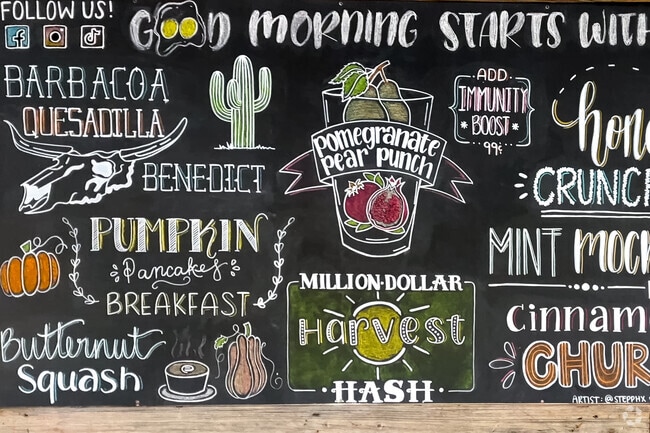 FOLLOW US!
GOOD MORNING STARTS WITH
BARBACOA
QUESADILLA
BENEDICT
PUMPKIN
Pancakes
BREAKFAST
Butternut
Squash
pomegranate
pear punch
MILLION-DOLLAR
Harvest
HASH
ADD
IMMUNITY
BOOST
99¢
CRUNC
MINT
Cinnam
CHUR
ARTIST: @STEPPHX